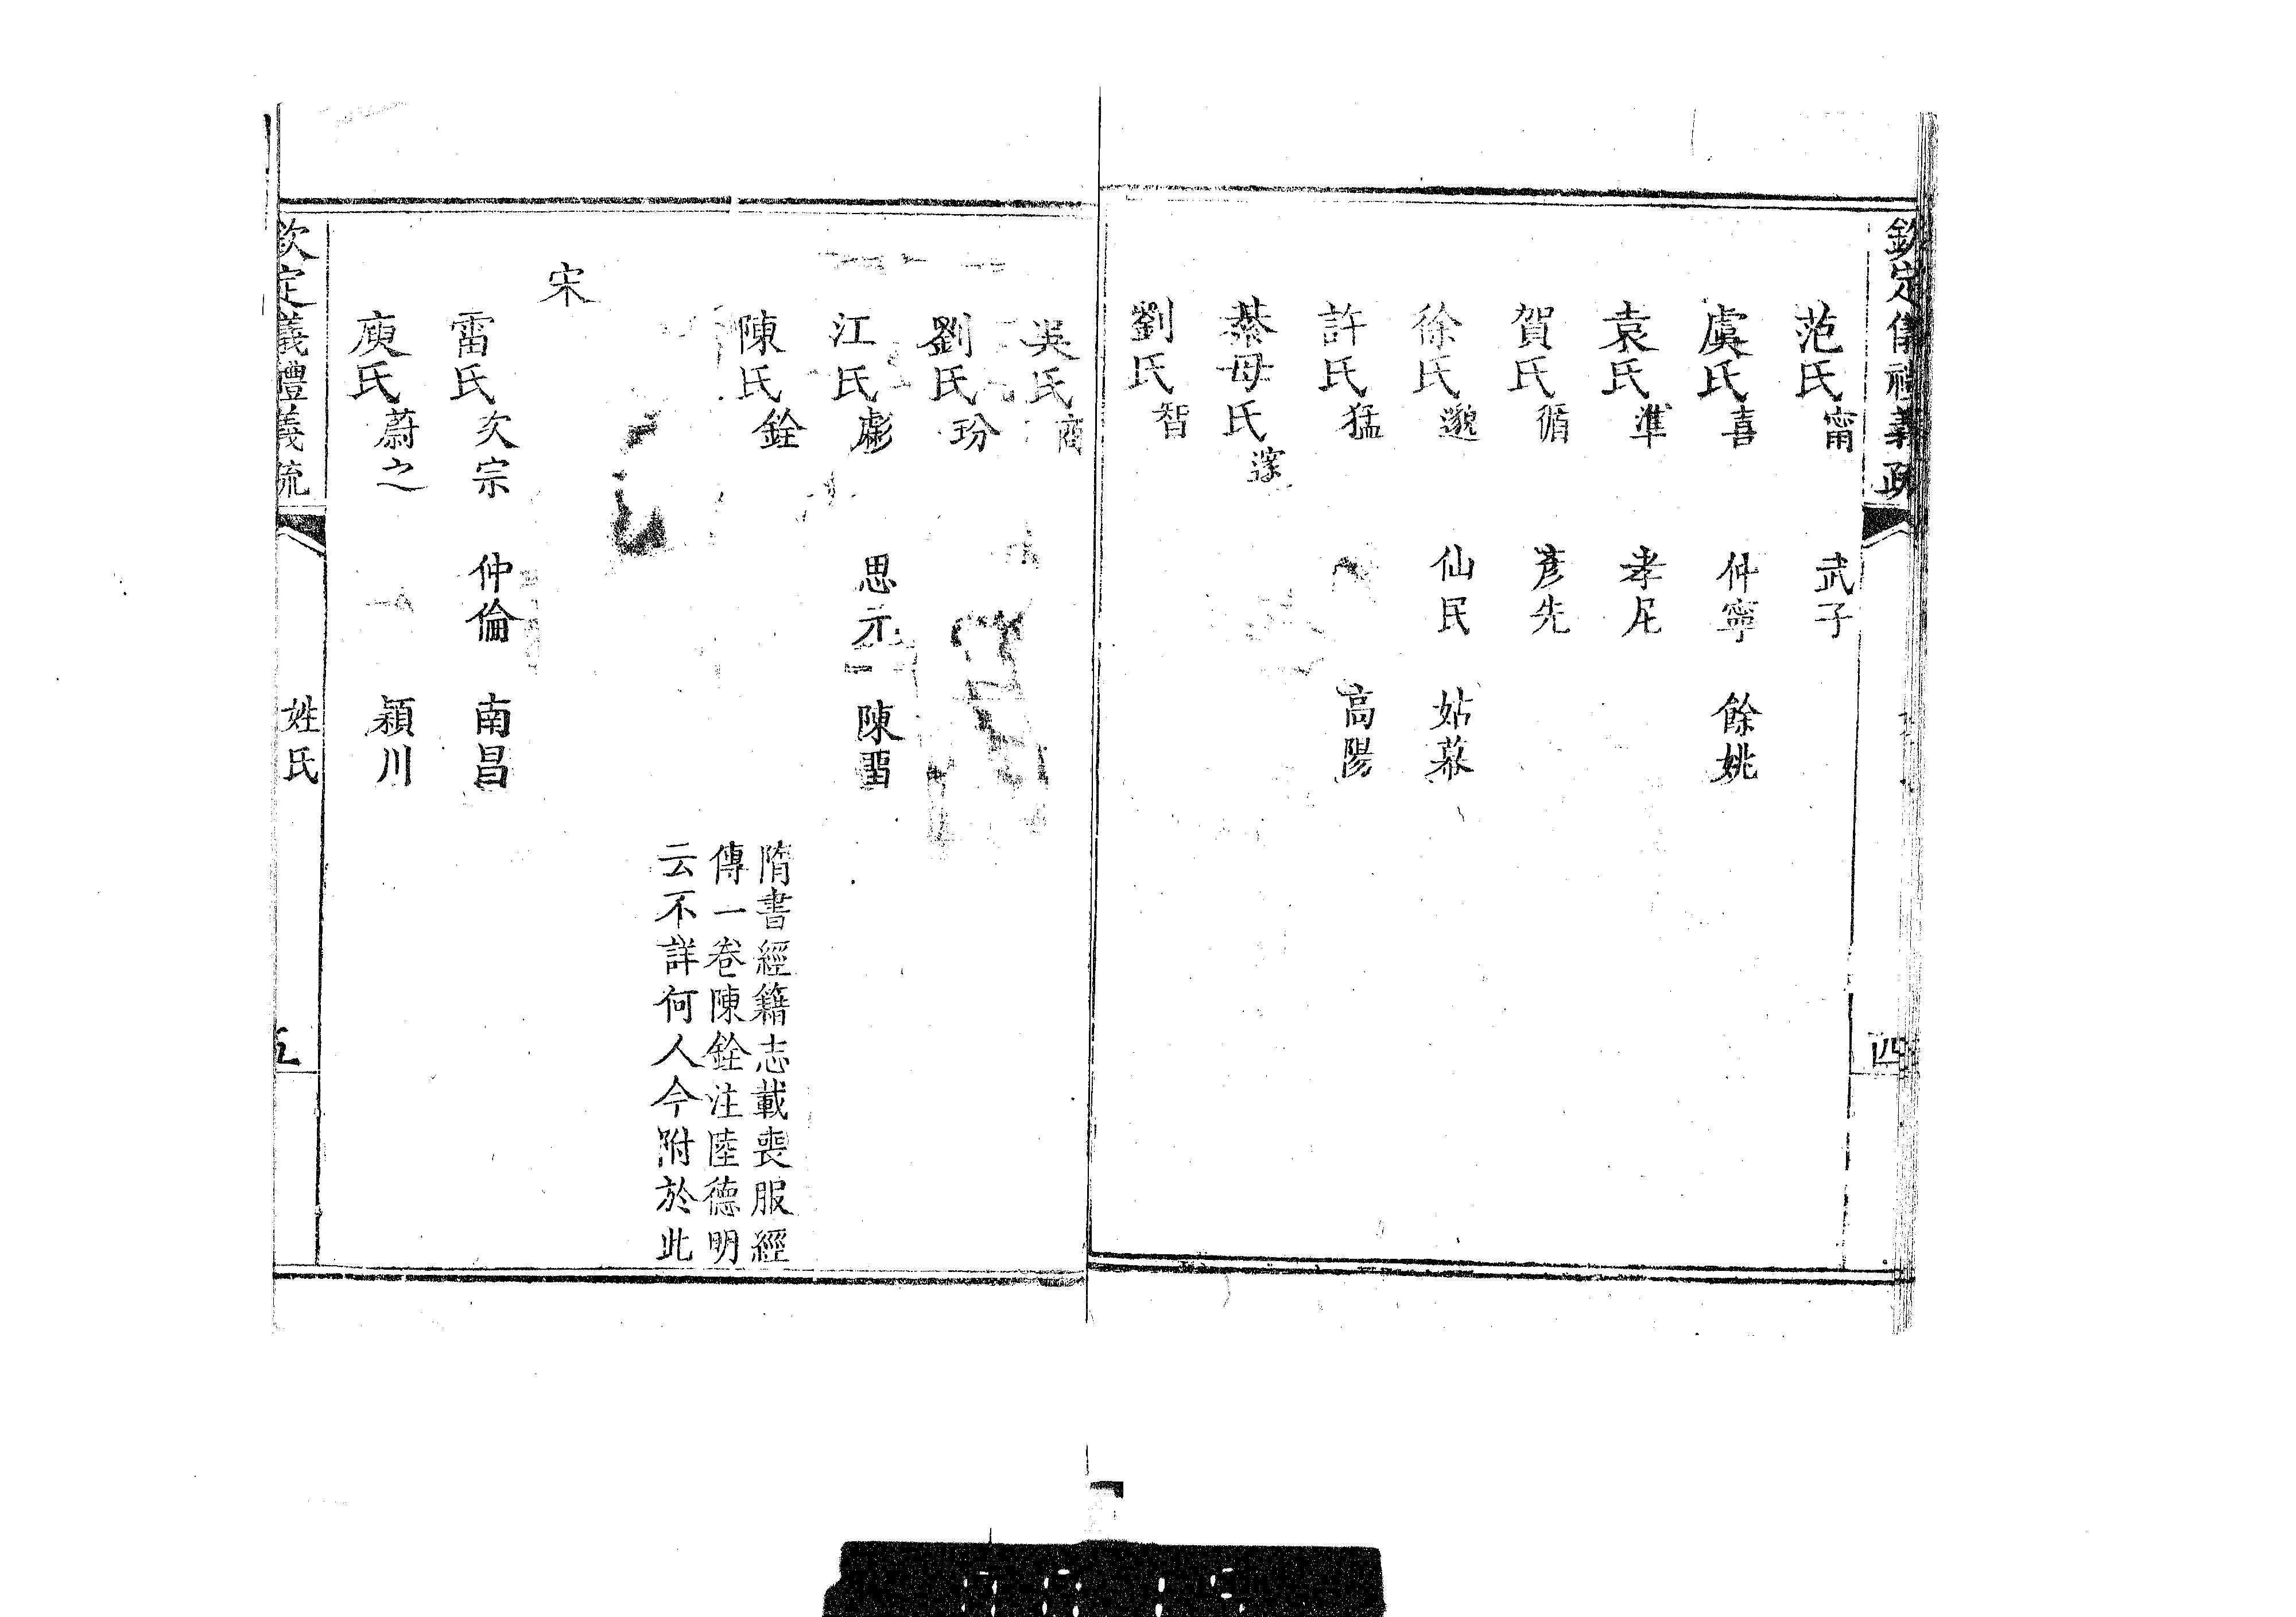 欽定儀禮義疏
四
范氏甯 武子
虞氏喜 仲寧 餘姚
袁氏準 孝尼
賀氏循 彥先
徐氏邈 仙民 姑幕
許氏猛 高陽
綦母氏邃
劉氏智
吳氏商
劉氏玢
江氏彪 思元 陳留
陳氏銓
隋書經籍志載喪服經
傳一卷陳銓注陸德明
云不詳何人今附於此
宋
雷氏次宗 仲倫 南昌
庾氏蔚之 潁川
欽定儀禮義疏 姓氏 五